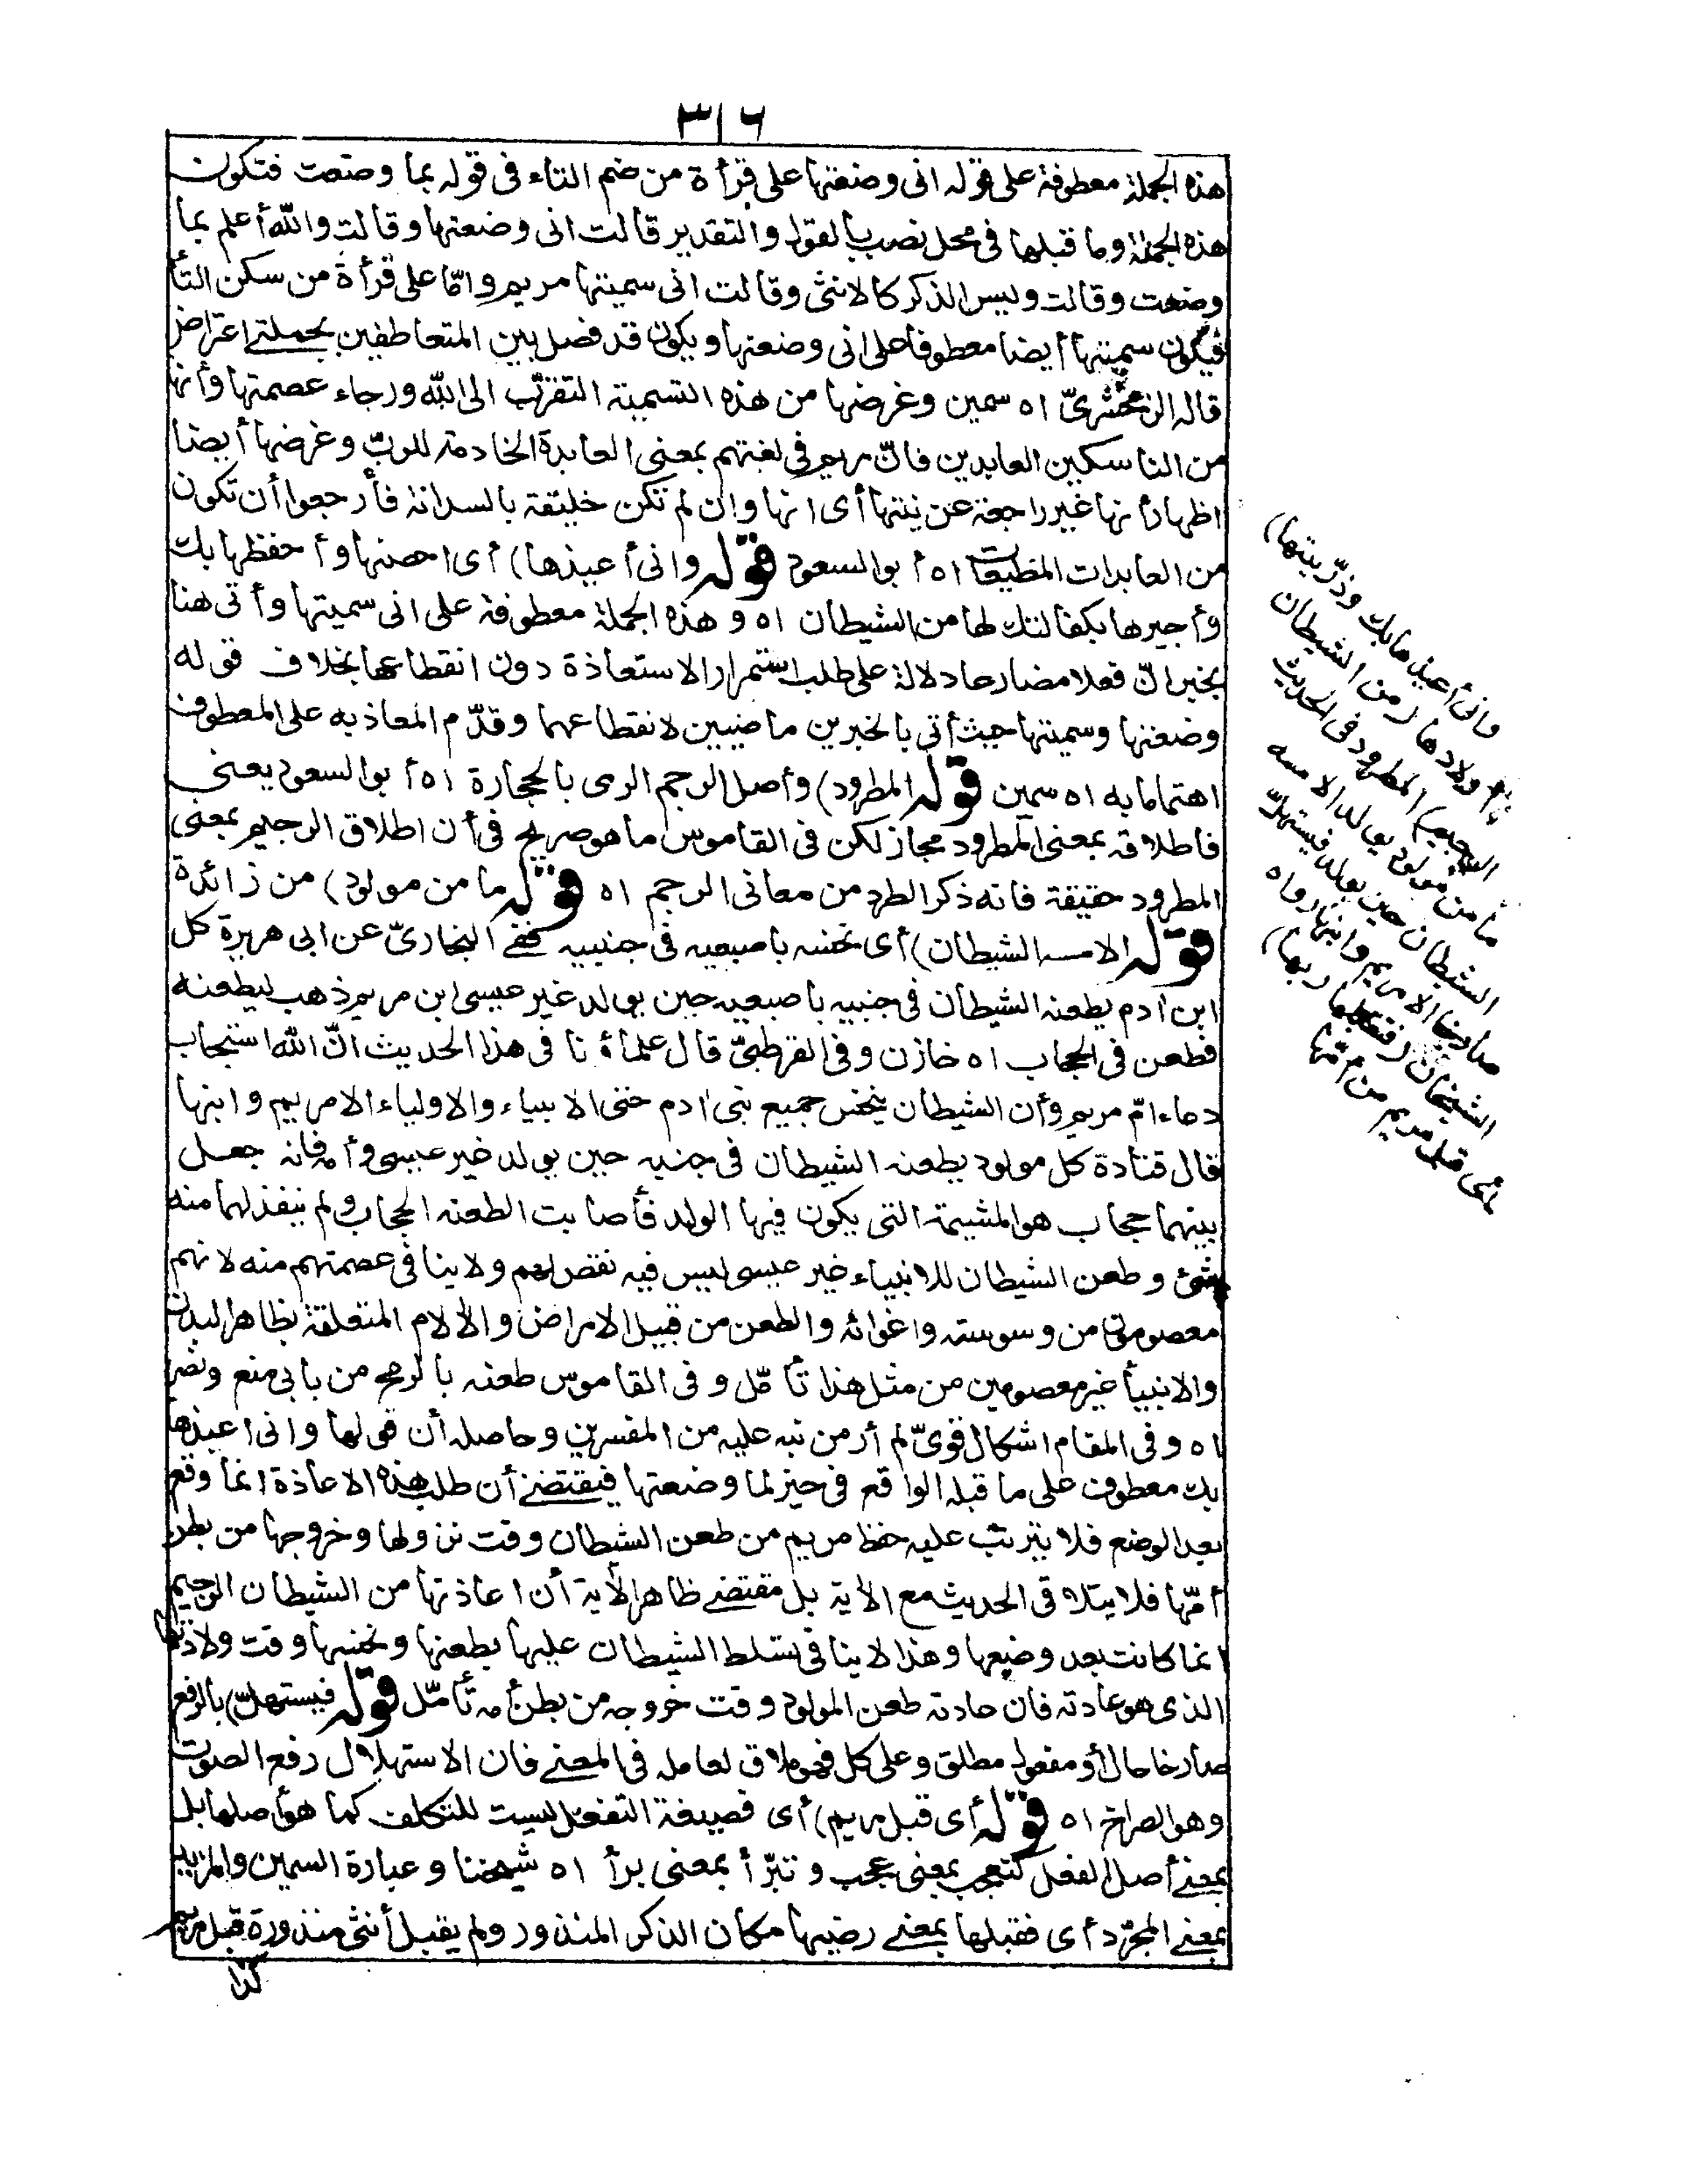 ٣١٦
هذه الجملة معطوفة على قوله انى وضعتها على قرأة من ضم التاء فى قوله بما وضعت فتكون
هذه الجملة وما قبلها فى محل نصب بالقول والتقدير قالت انى وضعتها وقالت والله أعلم بما
وضعت وقالت وليس الذكر كالانثى وقالت انى سميتها مريم وامّا على قرأة من سكن التأ
فيكون سميتها أيضا معطوفا على انى وضعتها ويكون قد فصل بين المتعاطفين بجملتى اعتراض
قاله الزمخشرىّ اه سمين وغرضها من هذه التسمية التقرّب الى الله ورجاء عصمتها وأنها
من الناسكين العابدين فانّ مريم فى لغتهم بمعنى العابدة الخادمة للربّ وغرضها أيضا
اظهار أنها غير راجعة عن نيتها أى انها وان لم تكن خليقة بالسدانة فأرجعوا أن تكون
من العابدات المطيعات اه أبو السعود قوله وانى أعيذها) أى احصنها وأحفظها بك
وأجيرها بكفالتك لها من الشيطان اه وهذه الجملة معطوفة على انى سميتها وأتى هنا
بخبر انّ فعلا مضارعا دلالة على طلب استمرار الاستعاذة دون انقطاعها بخلاف قوله
وضعتها وسميتها حيث أتى بالخبرين ماضيين لانقطاعهما وقدّم المعاذ به على المعطوف
اهتماما به اه سمين قوله المطرود) وأصل الرجم الرمى بالحجارة اه أبو السعود يعنى
فاطلاقه بمعنى المطرود مجاز لكن فى القاموس ما هو صريح فى أن اطلاق الرجيم بمعنى
المطرود حقيقة فانه ذكر الطرد من معانى الرجم اه قوله ما من مولود) من زائدة
قوله الا مسه الشيطان) أى نخسه باصبعيه فى جنبيه ففى البخارىّ عن ابى هريرة كل
ابن ادم يطعنه الشيطان فى جنبيه باصبعيه حين يولد غير عيسى ابن مريم ذهب ليطعنه
فطعن فى الحجاب اه خازن وفى القرطبىّ قال علمأؤنا فى هذا الحديث انّ الله استجاب
دعاء امّ مريم وأن الشيطان ينخس جميع بنى ادم حتى الانبياء والاولياء الا مريم وابنها
قال قتادة كل مولود يطعنه الشيطان فى جنبه حين يولد غير عيسى وأمه فانه جعل
بينهما حجاب هو المشيمة التى يكون فيها الولد فأصابت الطعنة الحجاب ولم ينفذ لهما منه
شئ وطعن الشيطان للانبياء غير عيسى ليس فيه نقص لهم ولا ينافى عصمتهم منه لانهم
معصومون من وسوسته واغوائه والطعن من قبيل الامراض والالام المتعلقة بظاهر البدن
والانبيأ غير معصومين من مثل هذا تأمّل وفى القاموس طعنه بالرمح من بابى منع ونصر
اه وفى المقام اشكال قوىّ لم أر من نبه عليه من المفسرين وحاصله أن قولها وانى اعيذها
بك معطوف على ما قبله الواقع فى حيز لما وضعتها فيقتضى أن طلب هذه الاعاذة انما وقع
بعد الوضع فلا يترتب عليه حفظ مريم من طعن الشيطان وقت نزولها وخروجها من بطن
أمّها فلا يتلاقى الحديث مع الأية بل مقتضى ظاهر الأية أن اعاذتها من الشيطان الرجيم
انما كانت بعد وضعها وهذا لا ينافى تسلط الشيطان عليها بطعنها ونخسها وقت ولادتها
الذى هو عادته فان عادته طعن المولود وقت خروجه من بطن أمه تأمّل قوله فيستهلّ) بالرفع
صارخا حال أو مفعول مطلق وعلى كل فهو ملاق لعامله فى المعنى فان الاستهلال رفع الصوت
وهو الصراخ اه قوله أى قبل مريم) أى فصيغة التفعل ليست للتكلف كما هو أصلها بل
بمعنى أصل الفعل كتعجب بمعنى عجب وتبرّأ بمعنى برأ اه شيخنا وعبارة السمين والمزيد
بمعنى المجرّد أى فقبلها بمعنى رضيها مكان الذكر المنذور ولم يقبل أنثى منذورة قبل مريم
كذا
وانى أعيذها بك وذرّيتها)
أولادها (من الشيطان
الرجيم) المطرود فى الحديث
ما من مولود يولد الا مسه
الشيطان حين يولد فيستهلّ
صارخا الا مريم وابنها رواه
الشيخان (فتقبلها ربها)
أى قبل مريم من أمّها